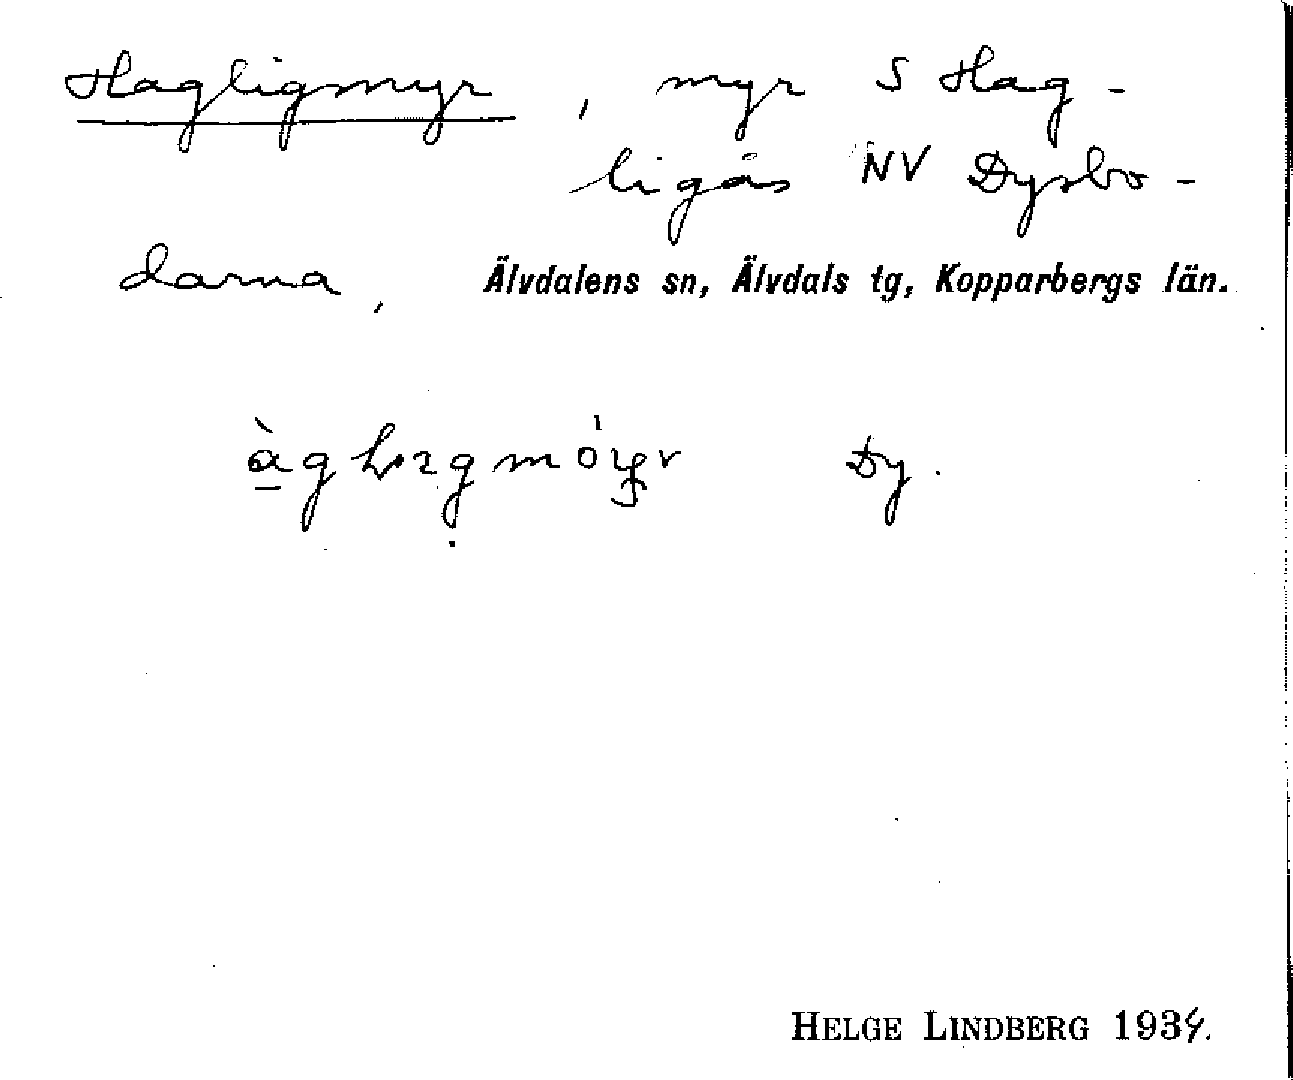 Hagligmyr, myr S Hag-
ligås NV Dysbo-
darna, Älvdalens sn, Älvdals tg, Kopparbergs län.
Dy.
HELGE LINDBERG 1934.